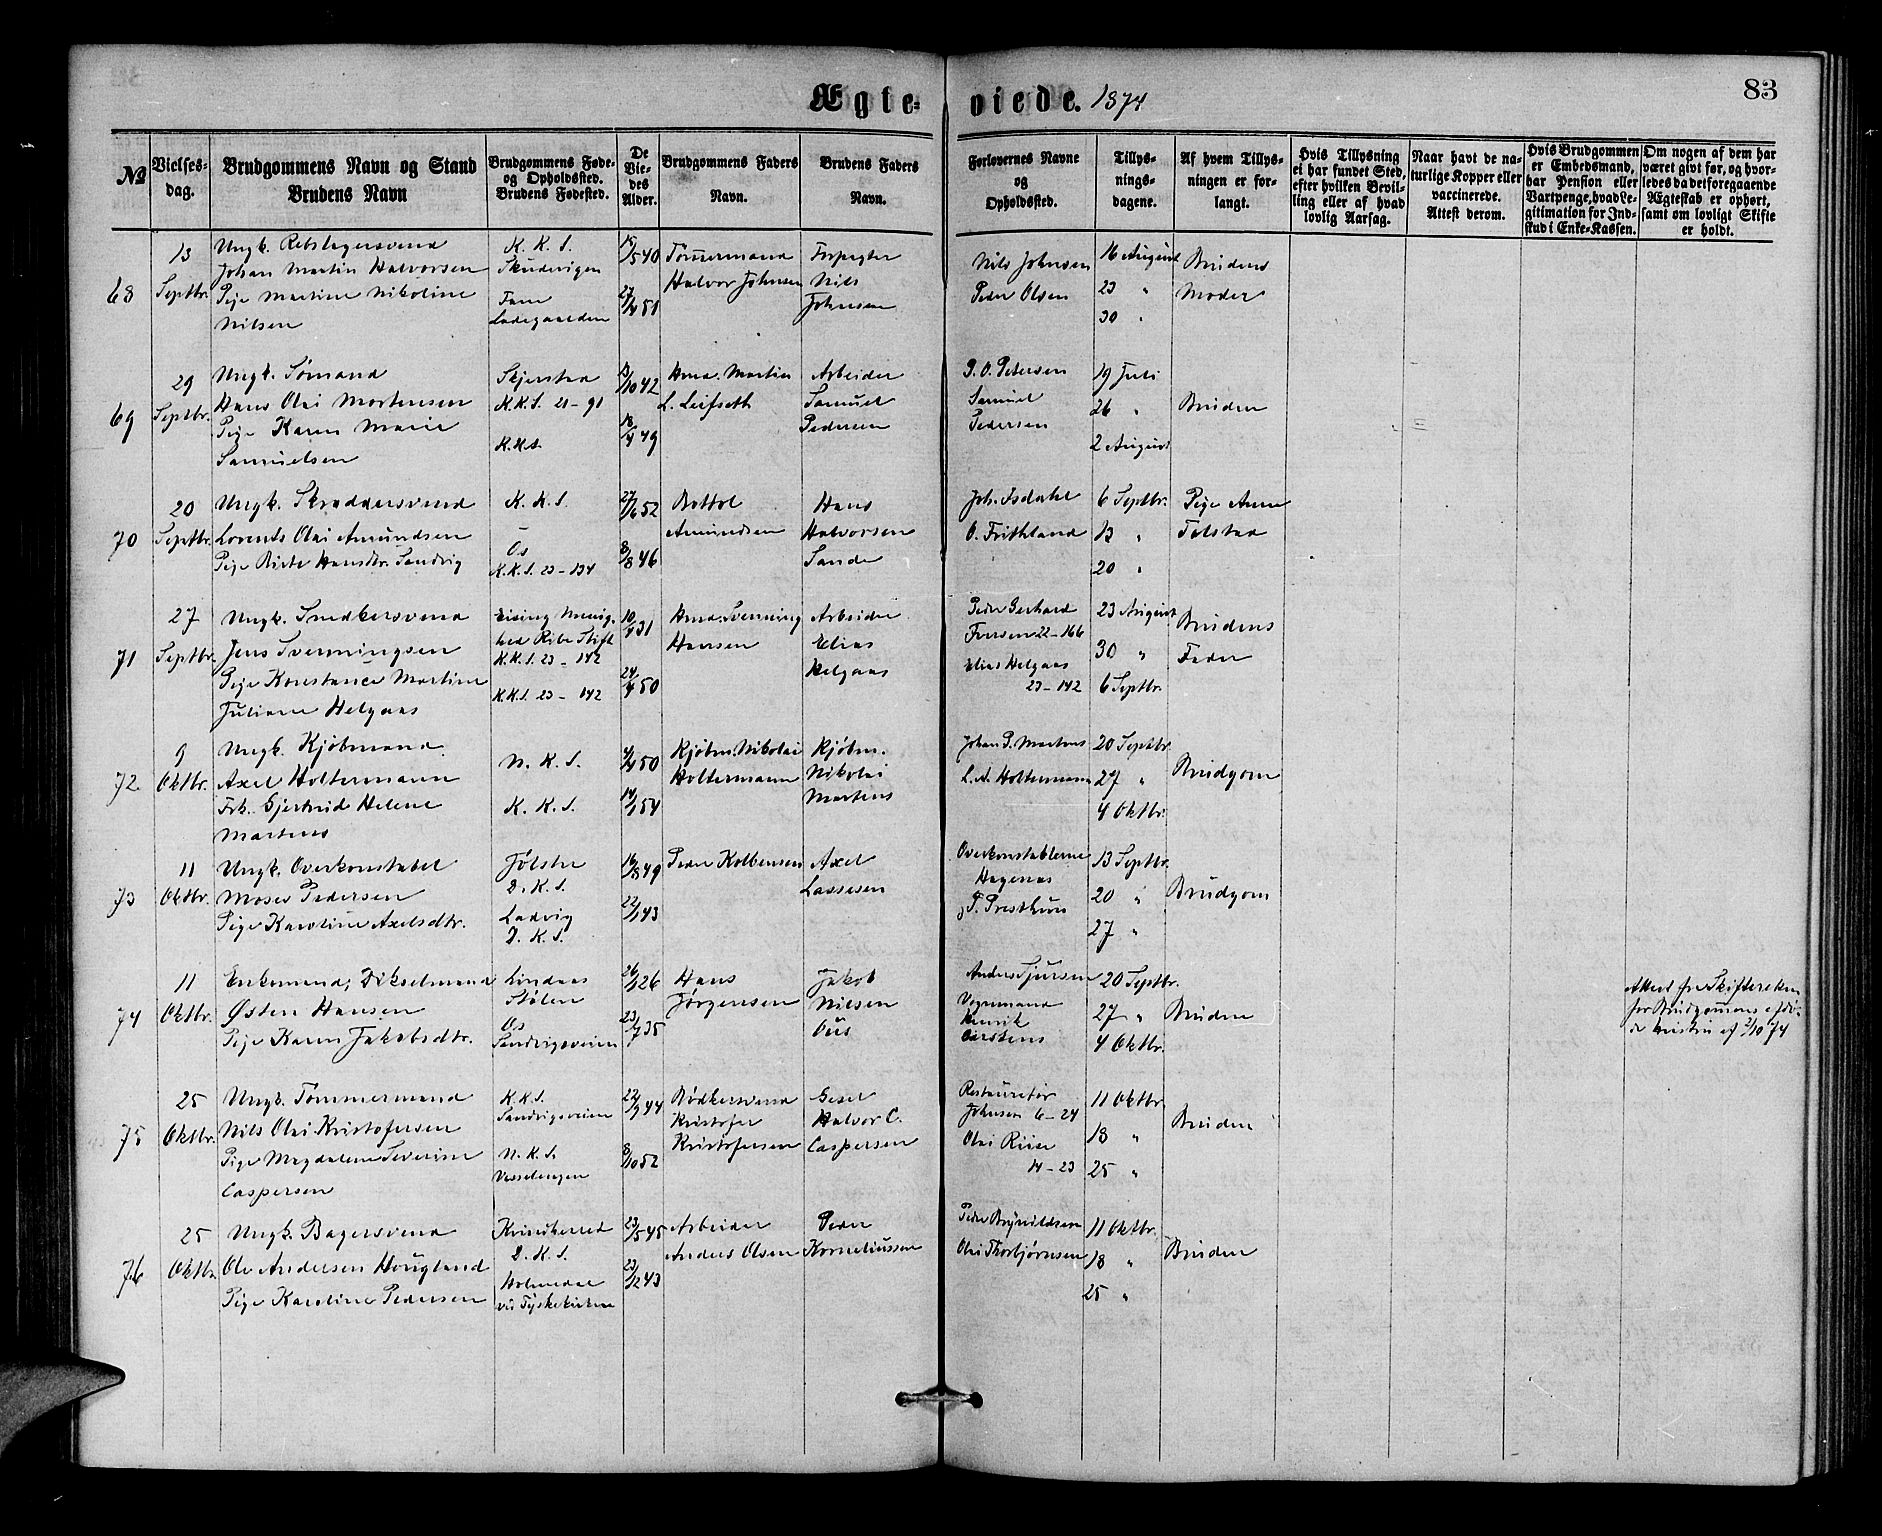 Ægte-viede. 1874
83
№
Vielses-dag.
Brudgommens Navn og Stand
Brudens Navn
Brudgommens Føde-
og Opholdssted.
Brudens Fødested.
De
Vie-
des
Alder.
Brudgommens Faders
Navn.
Brudens Faders
Navn.
Forlovernes Navne
og
Opholdssted.
Tillys-
nings-
dagene.
Af hvem Tillys-
ningen er for-
langt.
Hvis Tillysning
ei har fundet Sted,
efter hvilken Bevil-
ling eller af hvad
lovlig Aarsag.
Naar havt de na-
turlige Kopper eller
vaccinerede.
Attest derom.
Hvis Brudgommen
er Embedsmand,
har Pension eller
Vartpenge, hvad Le-
gitimation for Ind-
skud i Enke-Kassen.
Om nogen af dem har
været givt før, og hvor-
ledes da det foregaaende
Ægteskab er ophørt,
samt om lovligt Skifte
er holdt.
68
13
Septbr.
Ungk. Rebslagersvend
Johan Martin Halvorsen
Pige Martine Nikoline
Nilsen
K. K. S.
Skudevigen
Fane
Ladegaarden
/5 40
27/ 51
Tømmermand
Halvor Johnsen
Forpagter
Nils
Johnsen
Nils Johnsen
Peder Olsen
16 August
23 "
30 "
Brudens
Moder
69
29
Septbr.
Ungk. Sømand
Hans Olai Mortensen
Pige Karen Marie
Samuelsen
Skjerstad
K.K.S. 21-91
K.K.S.
/10 42
18/4 49
Hmd. Martin
L. Leifseth
Arbeider
Samuel
Pedersen
P. O. Petersen
Samuel
Pedersen
19 Juli
26 "
2 August
Bruden
70
20
Septbr.
Ungk. Skræddersvend
Lorents Olai Amundsen
Pige Birte Hansdtr. Sandvig
K. K. S.
Os
K.K.S. 23-134
27/6 52
8/8 46
Bottol
Amundsen
Hans
Halvorsen
Sande
Joh. Isdahl
O. Frithland
6 Septbr.
13 "
20 "
Pige Anne
Tolstad
71
27
Septbr.
Ungk. Snedkersvend
Jens Svenningsen
Pige Konstance Martine
Juliane Helgaas
Eising Menig-
hed Ribe Stift
K.K.S. 23-142
K.K.S. 23-142
10/4 31
24/4 50
Hmd. Svenning
Hansen
Arbeider
Elias
Helgaas
Peder Gerhard
Iversen 22-166
Elias Helgaas
23-142
23 August
30 "
6 Septbr.
Brudens
Fader
72
9
Oktbr.
Ungk. Kjøbmand
Axel Holtermann
Frk. Gjertrud Helene
Martens
N. K. S.
K. K. S.
50
54
Kjøbm. Nikolai
Holtermann
Kjøbm.
Nikolai
Martens
Johan P. Martens
L. A. Holtermann
20 Septbr.
27 "
4 Oktbr.
Brudgom
73
11
Oktbr.
Ungk. Overkonstabel
Moses Pedersen
Pige Karoline Axelsdtr.
Jølster
D. K. S.
Ladvig
D. K. S.
16/8 49
22/1 43
Peder Kolbensen
Axel
Lassesen
Overkonstablerne
Hagenas
J. Presthun
13 Septbr.
20 "
27 "
Brudgom
74
11
Oktbr.
Enkemand, Dikselmand
Østen Hansen
Pige Karen Jakobsdtr.
Lindaas
Stølen
Os
Sandvigsveien
26/1 26
23/7 35
Hans
Jørgensen
Jakob
Nilsen
Ous
Anders Tjursen
Vognmand
Henrik
Carstens
20 Septbr.
27 "
4 Oktbr.
Bruden
Attest fra Skifteretten
for Brudgommens afdø-
de Hustru af 2/10 74
75
25
Oktbr.
Ungk. Tømmermand
Nils Olai Kristofersen
Pige Magdalene Severine
Caspersen
K.K.S.
Sandvigsveien
N. K. S.
Vasselengen
22/9 44
8/10 52
Bødkersvend
Kristofer
Kristofersen
Gesel
Halvor C.
Caspersen
Restauratør
Johnsen 6-24
Olai Riise
14-23
11 Oktbr.
18 "
25 "
Bruden
76
25
Oktbr.
Ungk. Bagersvend
Ole Andersen Hougland
Pige Karoline Pedersen
Kvindherred
D. K. S.
Holmedal
ved Tyskekirken
23/5 45
23/12 43
Arbeider
Anders Olsen
Peder
Korneliussen
Peder Brynildsen
Olai Thorbjørnsen
11 Oktbr.
18 "
25 "
Bruden